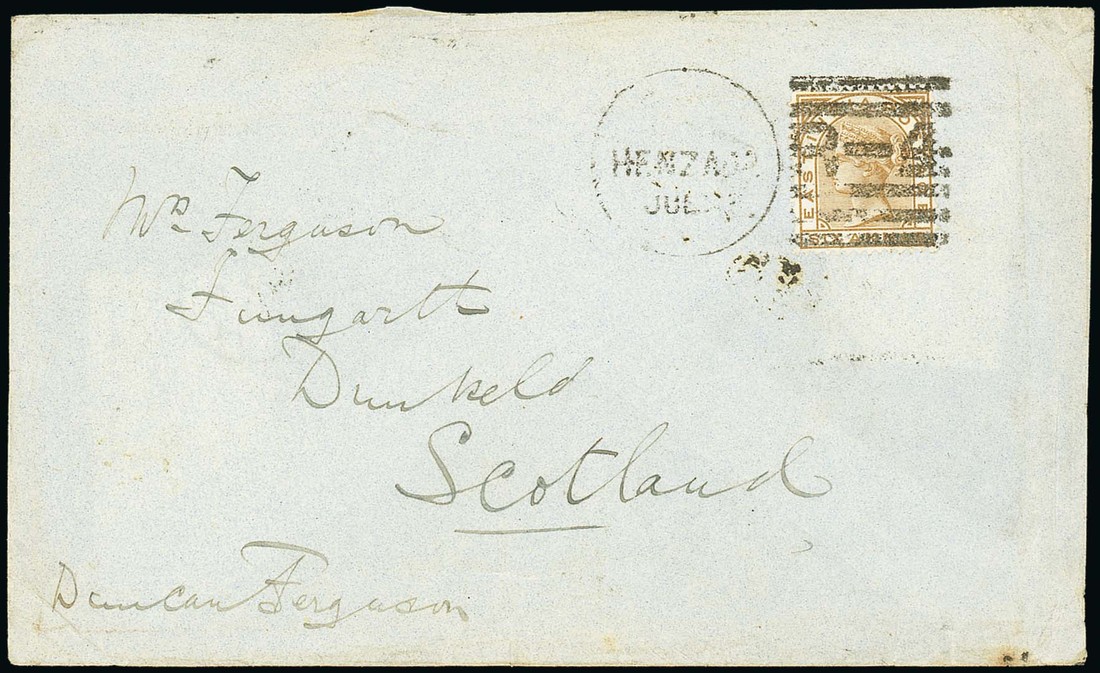 HENZADA
JUL
EAST INDIA
SIX
R-1
Mrs Ferguson
Fungarth
Dunkeld
Scotland
Duncan Ferguson